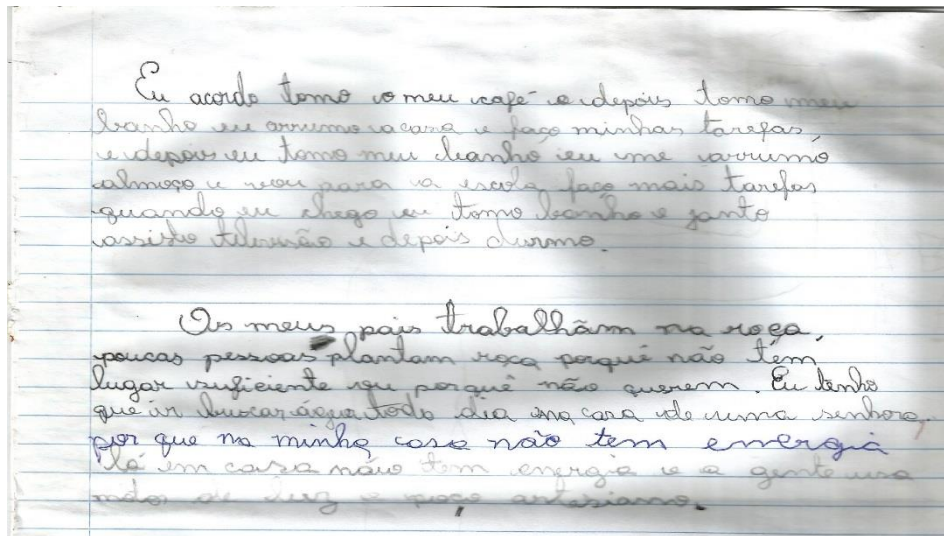 Eu acordo tomo o meu café e depois tomo meu
banho eu arrumo a casa e faço minhas tarefas,
e depois eu tomo meu banho eu me arrumo
almoço e vou para a escola faço mais tarefas
quando eu chego eu tomo banho e janto
assisto televisão e depois durmo.
Os meus pais trabalhãm na roça,
poucas pessoas plantam roça porquê não tem
lugar suficiente ou porquê não querem. Eu tenho
que ir buscar água todo dia na casa de uma senhora,
por que na minha casa não tem energia
lá em casa não tem energia e a gente usa
de luz e poço artesiano.